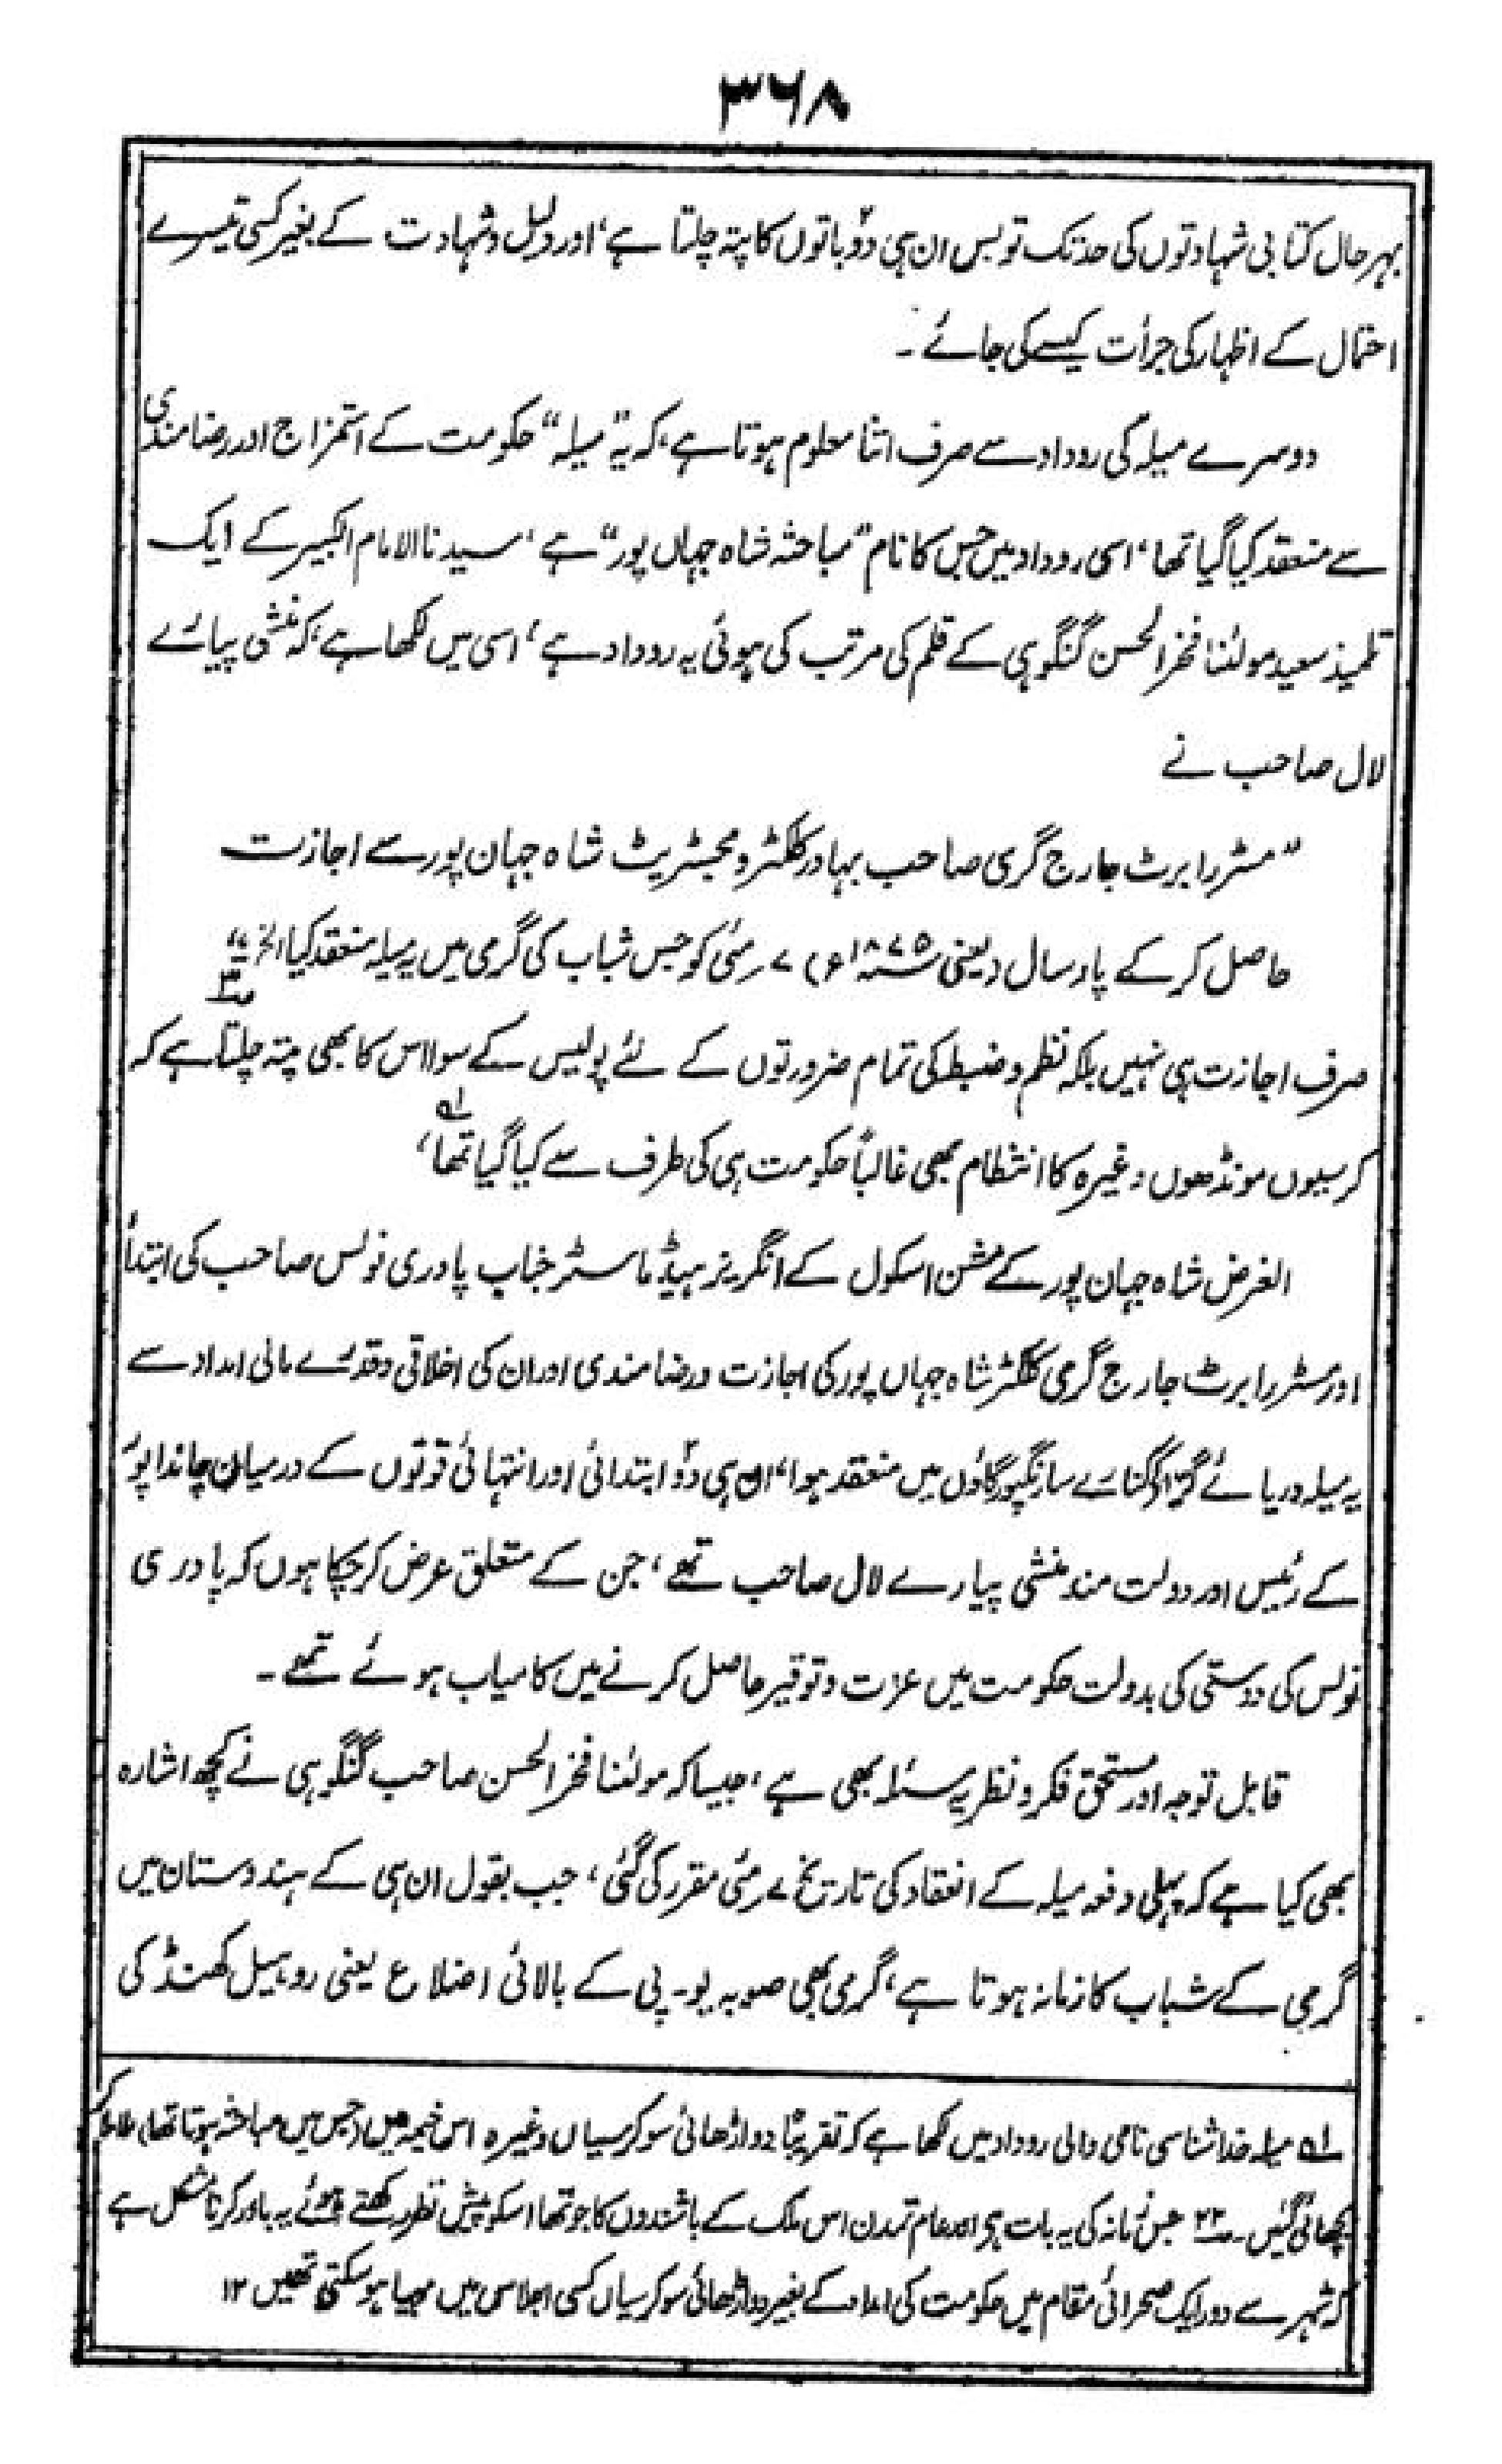 ۳۶۸
بہرحال کتابی شہادتوں کی حد تک تو بس ان ہی دو باتوں کا پتہ چلتا ہے، اور دلیل و شہادت کے بغیر کسی تیسرے
احتمال کے اظہار کی جرأت کیسے کی جائے۔
دوسرے میلہ کی روداد سے صرف اتنا معلوم ہوتا ہے، کہ یہ "میلہ" حکومت کے استمزاج اور رضامندی
سے منعقد کیا گیا تھا، اسی روداد میں جس کا نام "مباحثہ شاہ جہاں پور" ہے، سیدنا الامام الکبیر کے ایک
تلمیذ سعید مولٰنا فخر الحسن گنگوہی کے قلم کی مرتب کی ہوئی یہ روداد ہے، اسی میں لکھا ہے، کہ منشی پیارے
لال صاحب نے
"مسٹر رابرٹ جارج گری صاحب بہادر کلکٹر و مجسٹریٹ شاہ جہان پور سے اجازت
حاصل کر کے پار سال (یعنی ۱۸۷۵ء) ۷ رمئی کو جس شباب کی گرمی میں یہ میلہ منعقد کیا الخ"
صرف اجازت ہی نہیں بلکہ نظم و ضبط کی تمام ضرورتوں کے لئے پولیس کے سوا اس کا بھی پتہ چلتا ہے کہ
کرسیوں مونڈھوں وغیرہ کا انتظام بھی غالباً حکومت ہی کی طرف سے کیا گیا تھا، ؎۱
الغرض شاہ جہان پور کے مشن اسکول کے انگریز ہیڈ ماسٹر جناب پادری نولس صاحب کی ابتداً
اور مسٹر رابرٹ جارج گرمی کلکٹر شاہ جہاں پور کی اجازت و رضامندی اور ان کی اخلاقی و قدرے مالی امداد سے
یہ میلہ دریائے گرا کے کنارے سارنگپور گاؤں میں منعقد ہوا، ان ہی دو ابتدائی اور انتہائی قوتوں کے درمیان چاندا پور
کے رئیس اور دولت مند منشی پیارے لال صاحب تھے، جن کے متعلق عرض کر چکا ہوں کہ پادری
نولس کی دوستی کی بدولت حکومت میں عزت و توقیر حاصل کرنے میں کامیاب ہوئے تھے۔
قابل توجہ اور مستحق فکر و نظر یہ مسئلہ بھی ہے، جیسا کہ مولٰنا فخر الحسن صاحب گنگوہی نے کچھ اشارہ
بھی کیا ہے کہ پہلی دفعہ میلہ کے انعقاد کی تاریخ ۷ رمئی مقرر کی گئی، جب بقول ان ہی کے ہندوستان میں
گرمی کے شباب کا زمانہ ہوتا ہے، گرمی بھی صوبہ یو۔پی کے بالائی اضلاع یعنی روہیل کھنڈ کی
؎۱ میلہ خدا شناسی نامی والی روداد میں لکھا ہے کہ تقریباً دو اڑھائی سو کرسیاں وغیرہ اس خیمہ میں (جس میں مباحثہ ہوتا تھا)
بچھائی گئیں۔ جس زمانہ کی یہ بات ہی اور عام تمدن اس ملک کے باشندوں کا جو تھا اسکو پیش نظر رکھتے ہوئے یہ باور کرنا مشکل ہے
کہ شہر سے دور ایک صحرائی مقام میں حکومت کی امداد کے بغیر دو اڑھائی سو کرسیاں کسی اجلاس میں مہیا ہو سکتی تھیں ۱۲